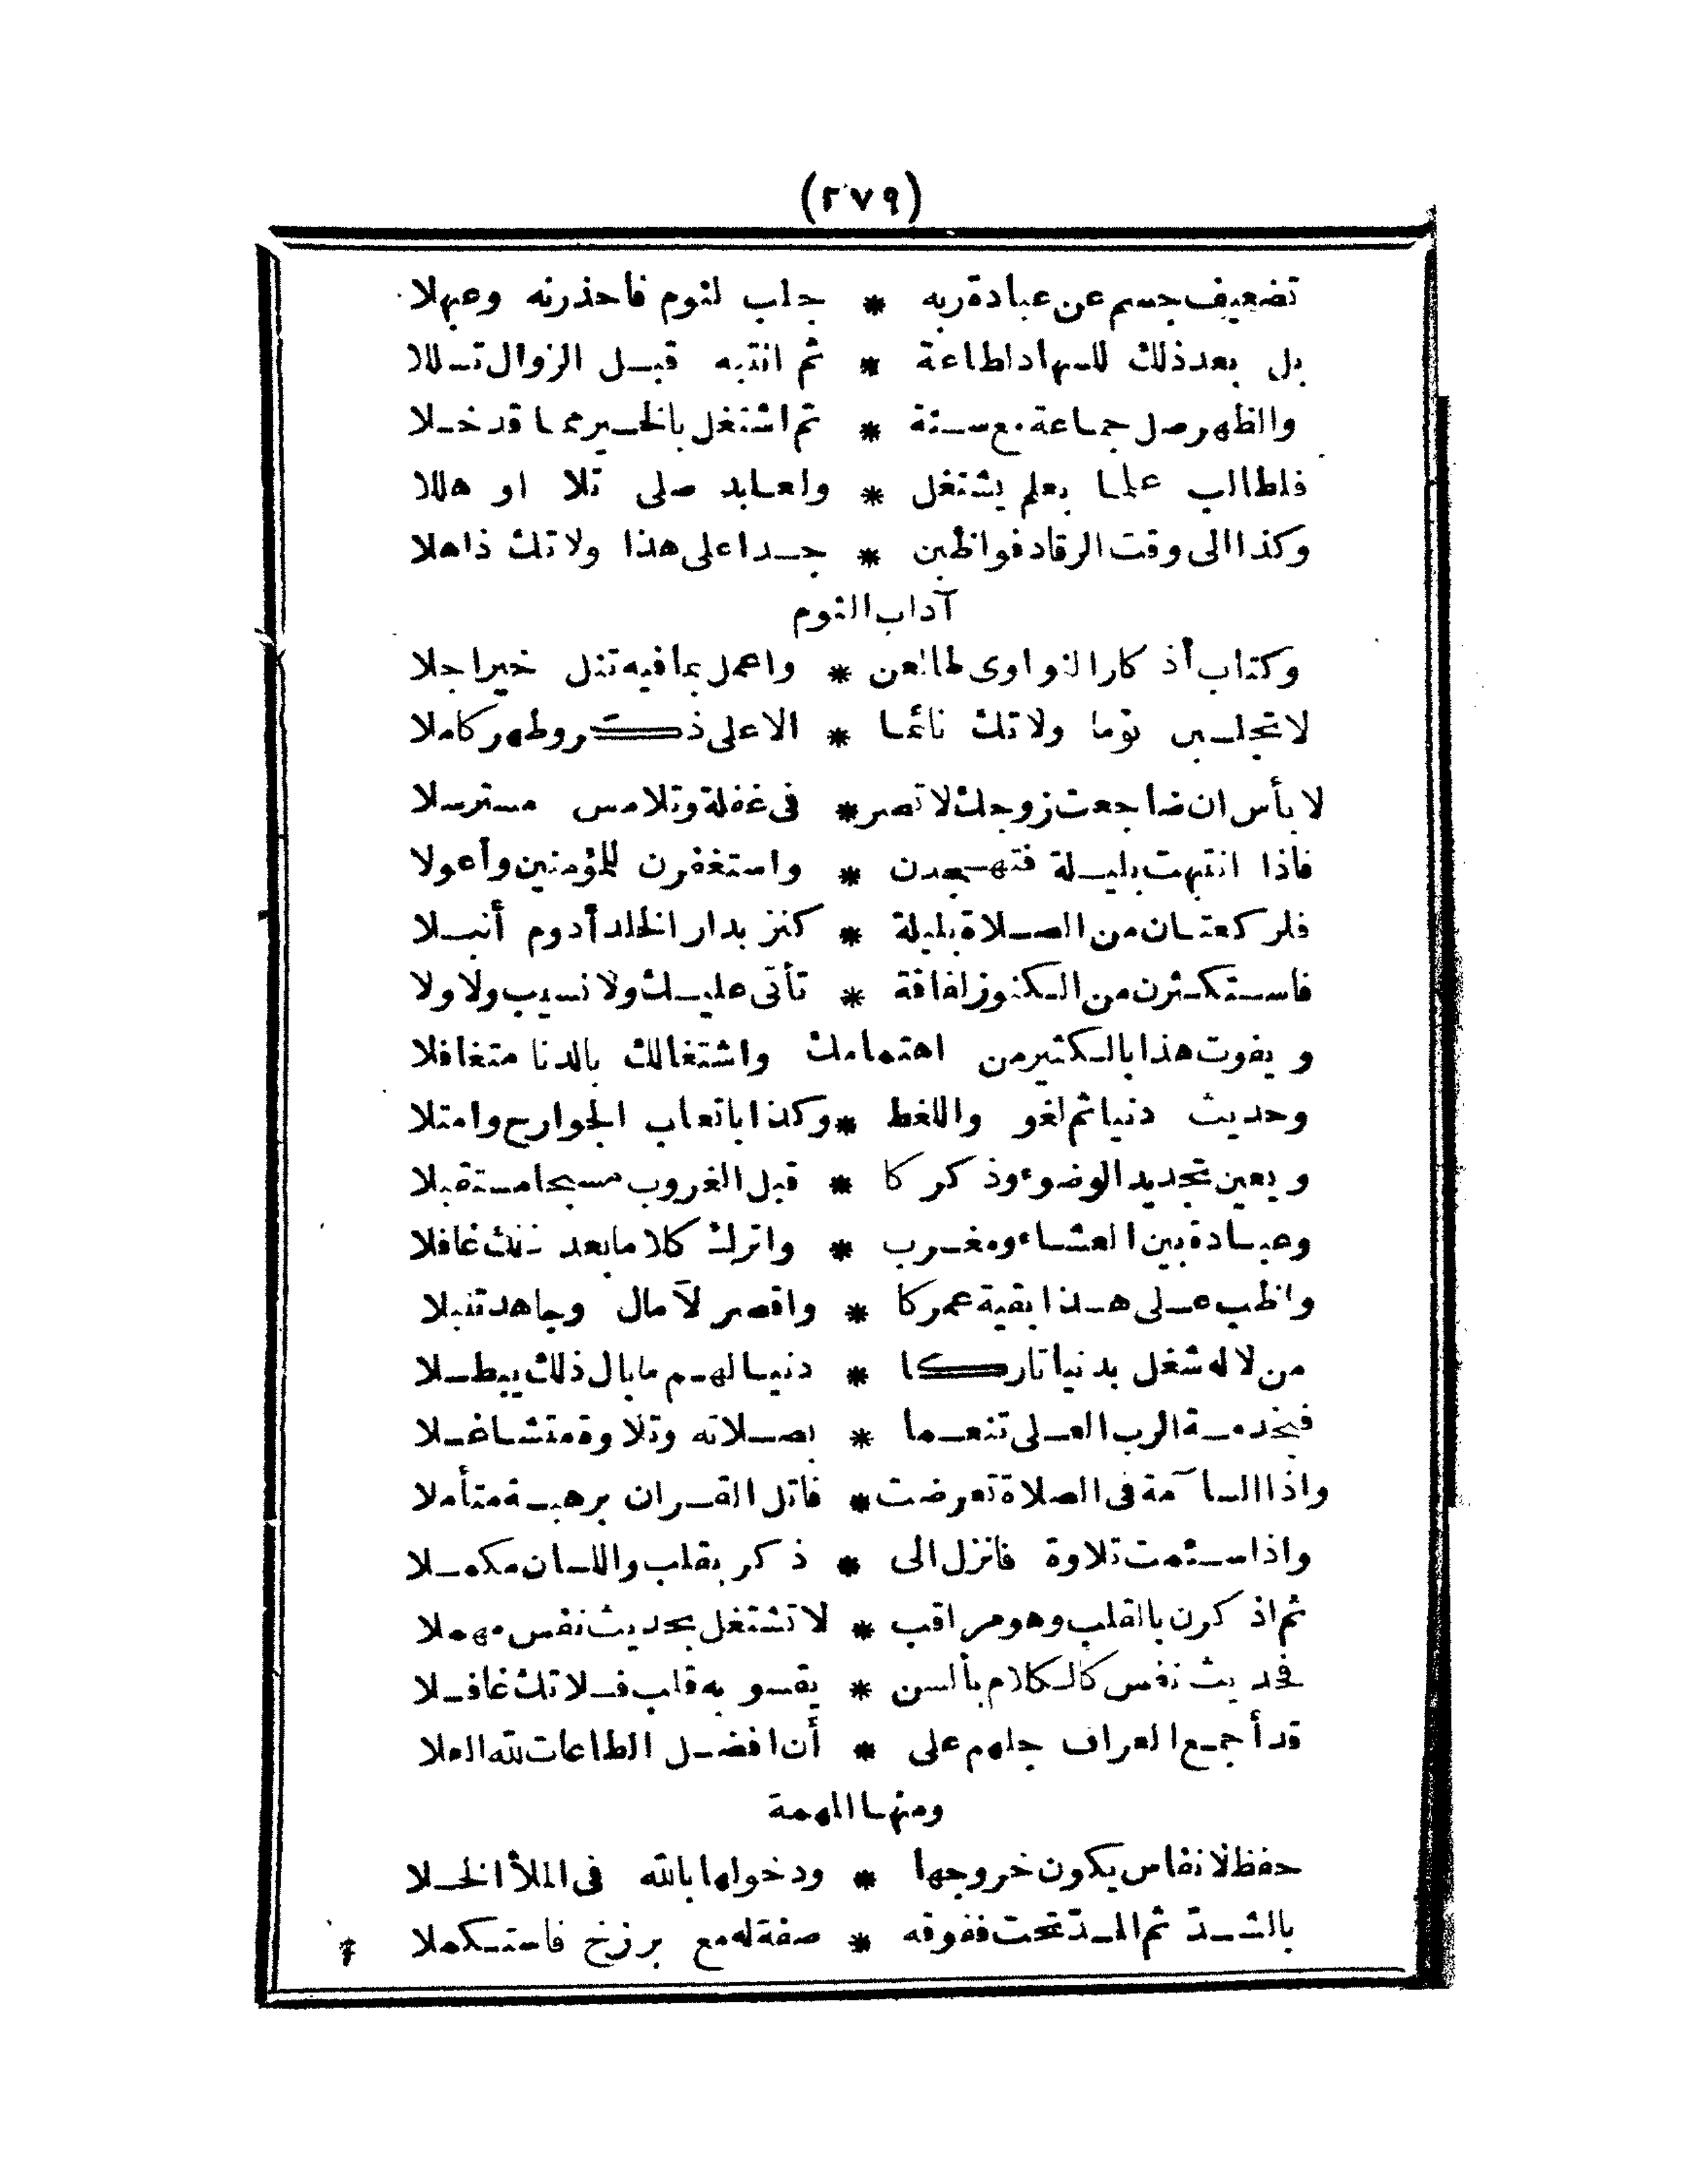 (٢٧٩)
تضعيف جسم عن عبادة ربه * جلب لنوم فاحذرنه وعبهلا
بل بعد ذلك للسهاد لطاعة * ثم انتبه قبل الزوال تسللا
والظهر صل جماعة مع سنة * ثم اشتغل بالخير مما قد خلا
فلطالب علما بعلم يشتغل * ولعابد صلى تلا او هللا
وكذا الى وقت الرقاد فواظبن * جدا على هذا ولا تك ذاهلا
آداب النوم
وكتاب أذكار النواوى طالعن * واعمل بما فيه تنل خيرا جلا
لا تجلبن نوما ولا تك نائما * الا على ذكر وطهر كاملا
لا بأس ان ضاجعت زوجك لا تصر * فى غفلة وتلامس مسترسلا
فاذا انتبهت بليلة فتهجدن * واستغفرن للمؤمنين وأعولا
فلركعتان من الصلاة بليلة * كنز بدار الخلد أدوم أنبلا
فاستكثرن من الكنوز لفاقة * تأتى عليك ولا نسيب ولا ولا
ويفوت هذا بالكثير من اهتمامك واشتغالك بالدنا متغافلا
وحديث دنيا ثم لغو واللغط * وكذا باتعاب الجوارح وامتلا
ويعين تجديد الوضوء وذكركا * قبل الغروب مسبحا مستقبلا
وعبادة بين العشاء ومغرب * واترك كلاما بعد ذلك غافلا
واظب على هذا بقية عمركا * واقصر لآمال وجاهد تنبلا
من لا له شغل بدنيا تاركا * دنيا لهم ما بال ذلك يبطلا
فبخدمة الرب العلى تنعما * بصلاته وتلاوة متشاغلا
واذا السآمة فى الصلاة تعرضت * فاتل القران برهبة متأملا
واذا سئمت تلاوة فانزل الى * ذكر بقلب واللسان مكملا
ثم اذكرن بالقلب وهو مراقب * لا تشتغل بحديث نفس مهملا
فحديث نفس كالكلام بألسن * يقسو به قلب فلا تك غافلا
قد أجمع العراف جلهم على * أن افضل الطاعات لله العلا
ومنها المهمة
حفظ لأنفاس يكون خروجها * ودخولها بالله فى الملأ الخلا
بالشد ثم المد تحت ففوقه * صفة له مع برزخ فاستكملا